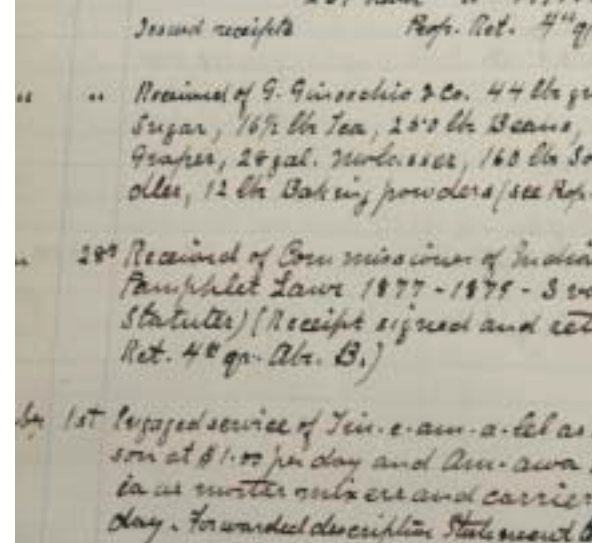 Issued receipts Prop. Ret. 4th q
" " Received of G. Ginocchio & Co. 44 lbs gr
Sugar, 16½ lbs Tea, 250 lbs Beans,
Grapes, 28 gal. Molasses, 160 lbs So
dles, 12 lbs Baking powders (see Rop.
" 28th Received of Commissioner of India
Pamphlet Laws 1877-1879 - 3 vo
Statutes) (Receipt signed and ret
Ret. 4th qr. Abs. B.)
ber 1st Engaged service of as
son at $1.00 per day and
ia as morter mixers and carrier
day. Forwarded descriptive Statement